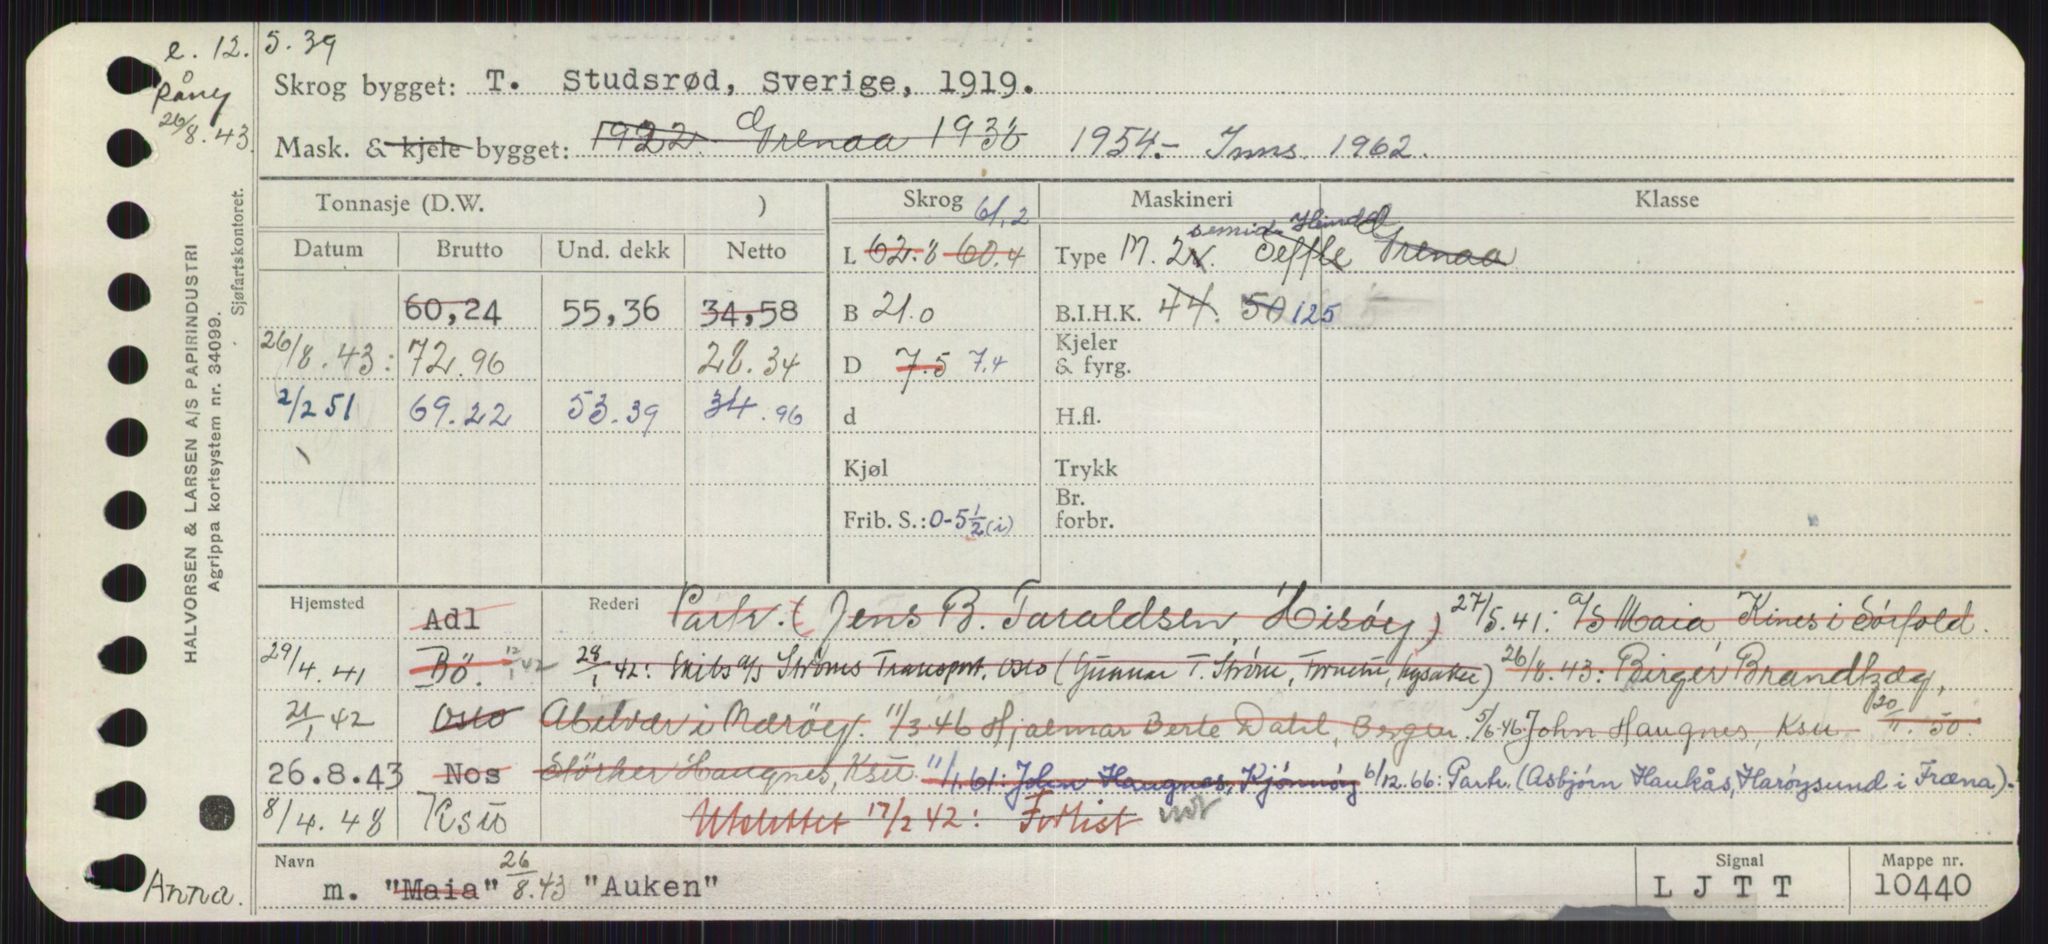 e. 12. 5. 39
Rång
26/8.43.
Skrog bygget: T. Studsrød, Sverige, 1919.
Mask. & kjele bygget: 1922. Grenaa 1936 1954.- Inns. 1962.
Tonnasje (D.W. ) Skrog 61,2 Maskineri Klasse
Datum Brutto Und. dekk Netto L 62.8 60.4 Type M. 2v. Seffle Grenaa
60,24 55,36 34,58 B 21.0 B.I.H.K. 44. 50 125
26/8.43: 72.96 28.34 D 7.5 7,4 Kjeler & fyrg.
2/2 51 69.22 53.39 34.96 d H.fl.
Kjøl Trykk
Frib. S.: 0-5½(i) Br. forbr.
Hjemsted Adl Rederi Partr. (Jens B. Taraldsen, Hisöy) 27/5.41: a/s Maia, Kines i Sörfold.
29/4.41 Bö. 12/1 42 28/1 42: Skibs a/s Ströms Transport, Oslo (Gunnar T. Ström, Lysaker) 26/8.43: Birger Brandtzæg,
21/1 42 Oslo Abelvær i Næröy. 11/3.46 Hjalmar Berle Dahl, Bergen. 5/6.46 John Haugnes, Ksu 20/11.50.
26.8.43 Nos Störker Haugnes, Ksu. 11/1.61: John Haugnes, Kjönnöy 6/12.66: Partr. (Asbjørn Haukås, Harøysund i Fræna).
8/4.48 Ksu Utslettet 17/2 42: Forlist
Navn m. "Maia" 26/8.43 "Auken" Signal L J T T Mappe nr. 10440
Anna.
HALVORSEN & LARSEN A/S PAPIRINDUSTRI
Agrippa kortsystem nr. 34099.
Sjøfartskontoret.